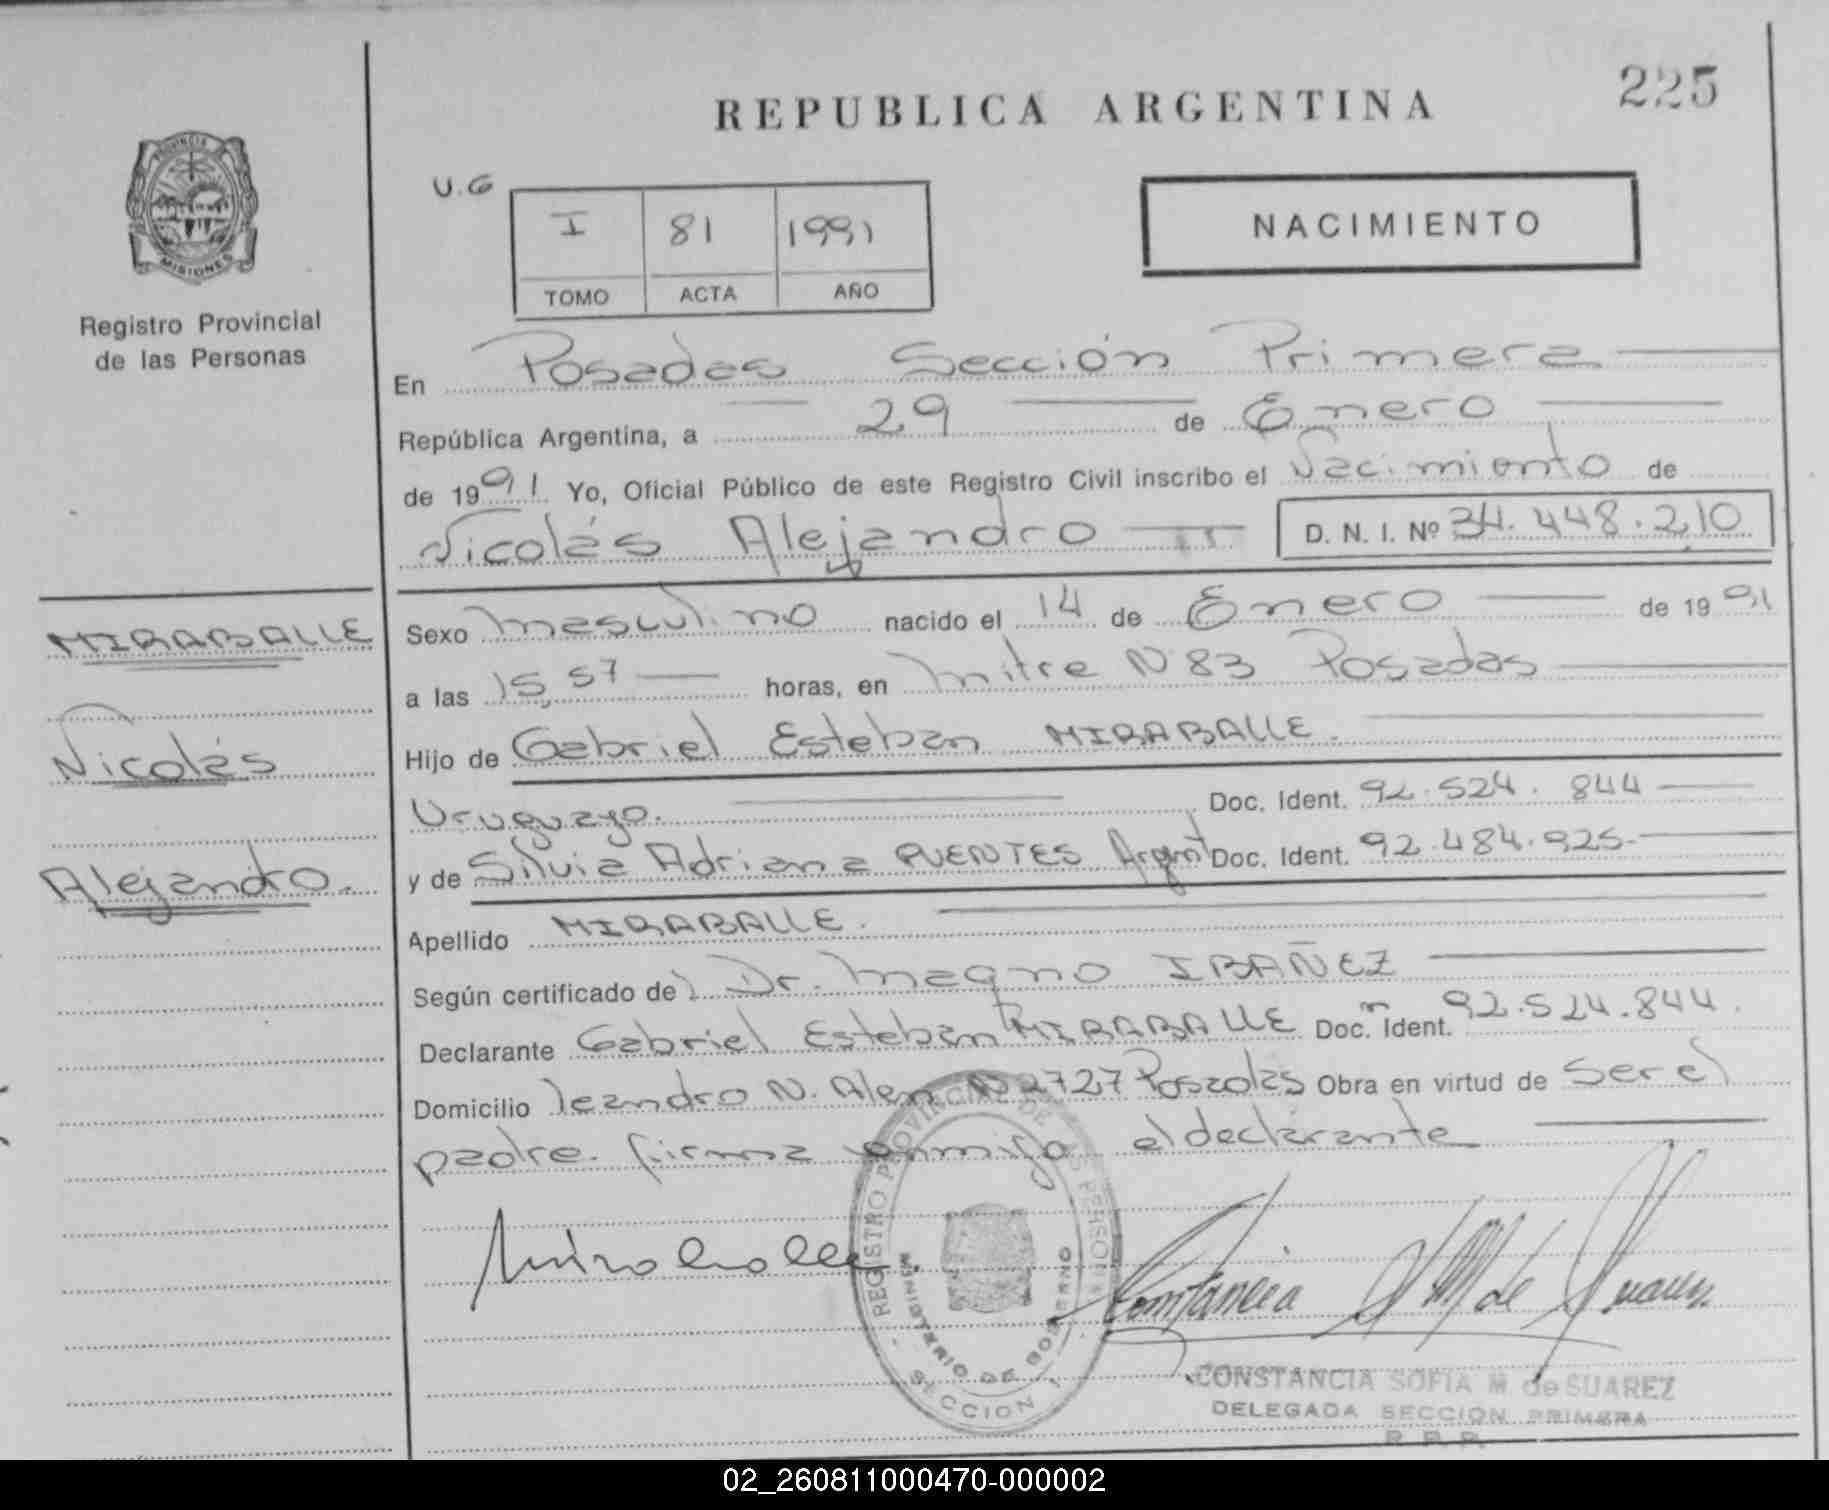 225
REPUBLICA ARGENTINA
PROVINCIA
MISIONES
Registro Provincial
de las Personas
U.G
I 81 1991
TOMO ACTA AÑO
NACIMIENTO
En Posadas Sección Primera
República Argentina, a 29 de Enero
de 1991 Yo, Oficial Público de este Registro Civil inscribo el Nacimiento de
Nicolás Alejandro D. N. I. Nº 34.448.210
MIRABALLE
Nicolás
Alejandro.
Sexo Masculino nacido el 14 de Enero de 1991
a las 15,57 horas, en Mitre Nº 83 Posadas
Hijo de Gabriel Esteban MIRABALLE.
Uruguayo. Doc. Ident. 92.524.844
y de Silvia Adriana PUENTES Argent Doc. Ident. 92.484.925.
Apellido MIRABALLE.
Según certificado del Dr. Magno IBAÑEZ
Declarante Gabriel Esteban MIRABALLE Doc. Ident. 92.524.844.
Domicilio Leandro N. Alem Nº 2727 Posadas Obra en virtud de ser el
padre. firma conmigo el declarante
Miraballe
Constancia S M de Suarez
REGISTRO PROVINCIAL DE LAS PERSONAS
MINISTERIO DE GOBIERNO
SECCION 1
CONSTANCIA SOFIA M. de SUAREZ
DELEGADA SECCION PRIMERA
R. P. P.
02_260811000470-000002